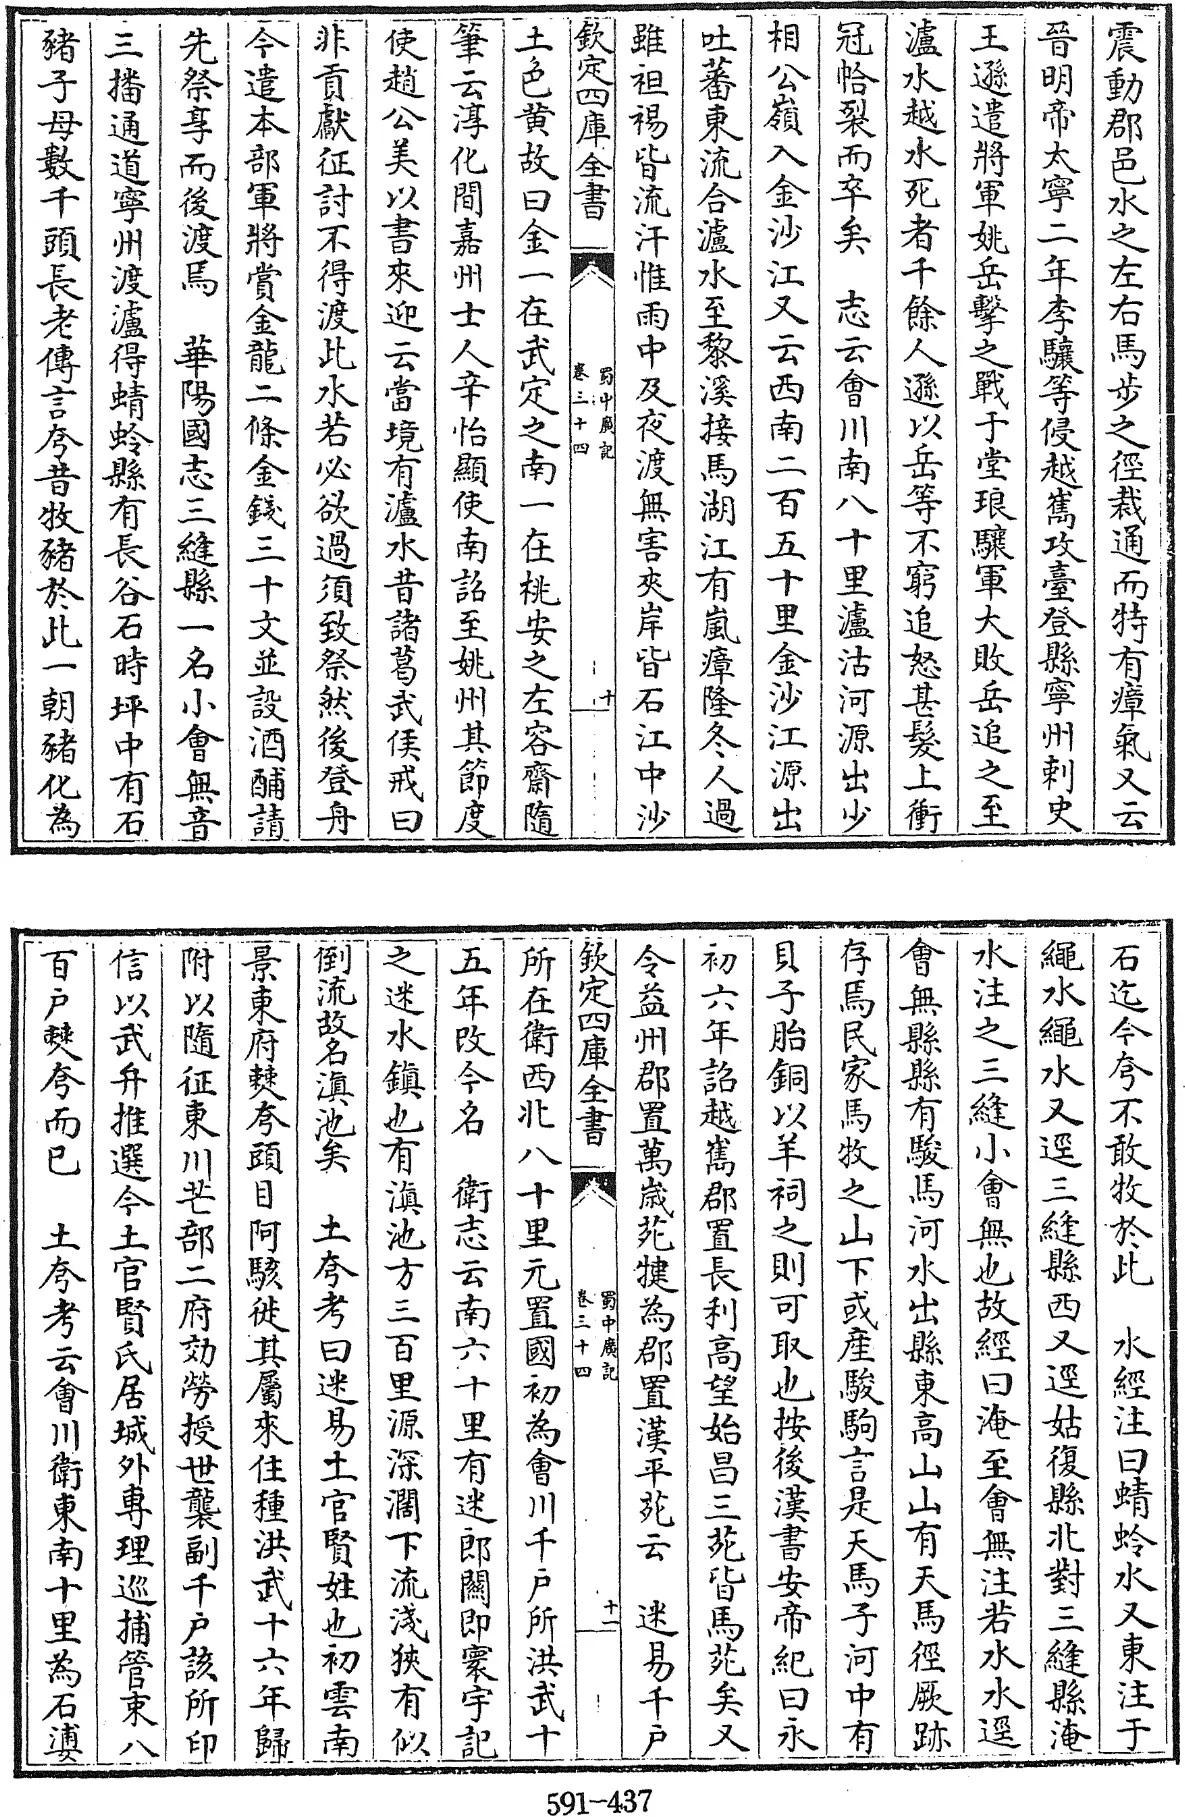 震動郡邑水之左右馬步之徑裁通而特有瘴氣又云
晉明帝太寧二年李驤等侵越嶲攻臺登縣寧州刺史
王遜遣將軍姚岳擊之戰于堂琅驤軍大敗岳追之至
瀘水越水死者千餘人遜以岳等不窮追怒甚髮上衝
冠帢裂而卒矣　志云會川南八十里瀘沽河源出少
相公嶺入金沙江又云西南二百五十里金沙江源出
吐蕃東流合瀘水至黎溪接馬湖江有嵐瘴隆冬人過
雖袒裼皆流汗惟雨中及夜渡無害夾岸皆石江中沙
欽定四庫全書
蜀中廣記
卷三十四
十
土色黄故曰金一在武定之南一在桃安之左容齋隨
筆云淳化間嘉州士人辛怡顯使南詔至姚州其節度
使趙公美以書來迎云當境有瀘水昔諸葛武侯戒曰
非貢獻征討不得渡此水若必欲過須致祭然後登舟
今遣本部軍將賞金龍二條金錢三十文並設酒酺請
先祭享而後渡焉　華陽國志三縫縣一名小會無音
三播通道寧州渡瀘得蜻蛉縣有長谷石時坪中有石
豬子母數千頭長老傳言夸昔牧豬於此一朝豬化為
石迄今夸不敢牧於此　水經注曰蜻蛉水又東注于
繩水繩水又逕三縫縣西又逕姑復縣北對三縫縣淹
水注之三縫小會無也故經曰淹至會無注若水水逕
會無縣縣有駿馬河水出縣東高山山有天馬徑厥跡
存焉民家馬牧之山下或産駿駒言是天馬子河中有
貝子胎銅以羊祠之則可取也按後漢書安帝紀曰永
初六年詔越嶲郡置長利高望始昌三苑皆馬苑矣又
令益州郡置萬歲苑犍為郡置漢平苑云　迷易千戶
欽定四庫全書
蜀中廣記
卷三十四
十一
所在衛西北八十里元置國初為會川千戶所洪武十
五年改今名　衛志云南六十里有迷郎關即寰宇記
之迷水鎮也有滇池方三百里源深濶下流淺狹有似
倒流故名滇池矣　土夸考曰迷易土官賢姓也初雲南
景東府僰夸頭目阿駭徙其屬來住種洪武十六年歸
附以隨征東川芒部二府効勞授世襲副千戶該所印
信以武弁推選今土官賢氏居城外專理巡捕管束八
百戶僰夸而已　土夸考云會川衛東南十里為石婁
591-437